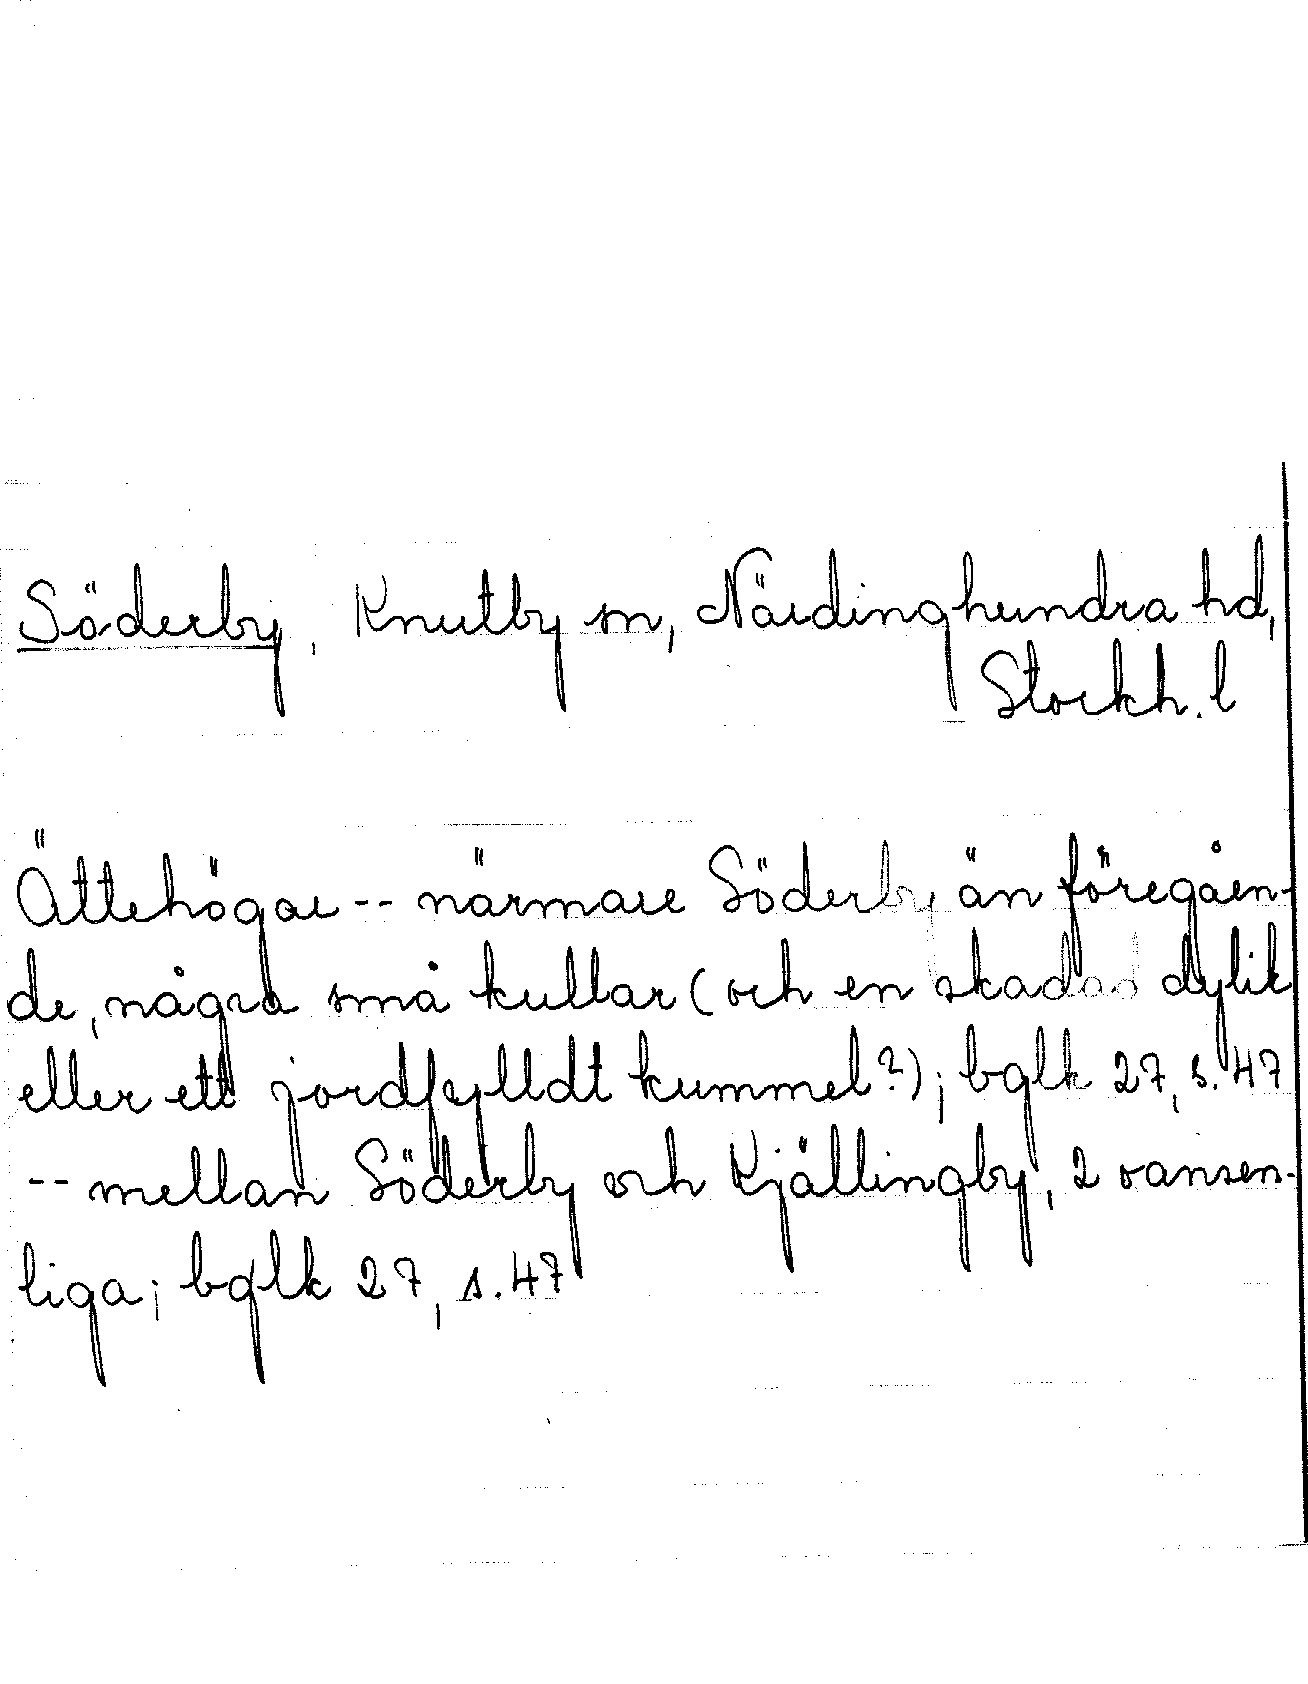 Söderby, Knutby sn, Närdinghundra hd,
Stockh. l
Ättehögar -- närmare Söderby än föregåen-
de, några små kullar (och en skadad dylik
eller ett jordfylldt kummel?); bglk 27, s. 47
-- mellan Söderby och Kjällingby, 2 oansen-
liga; bglk 27, s. 47